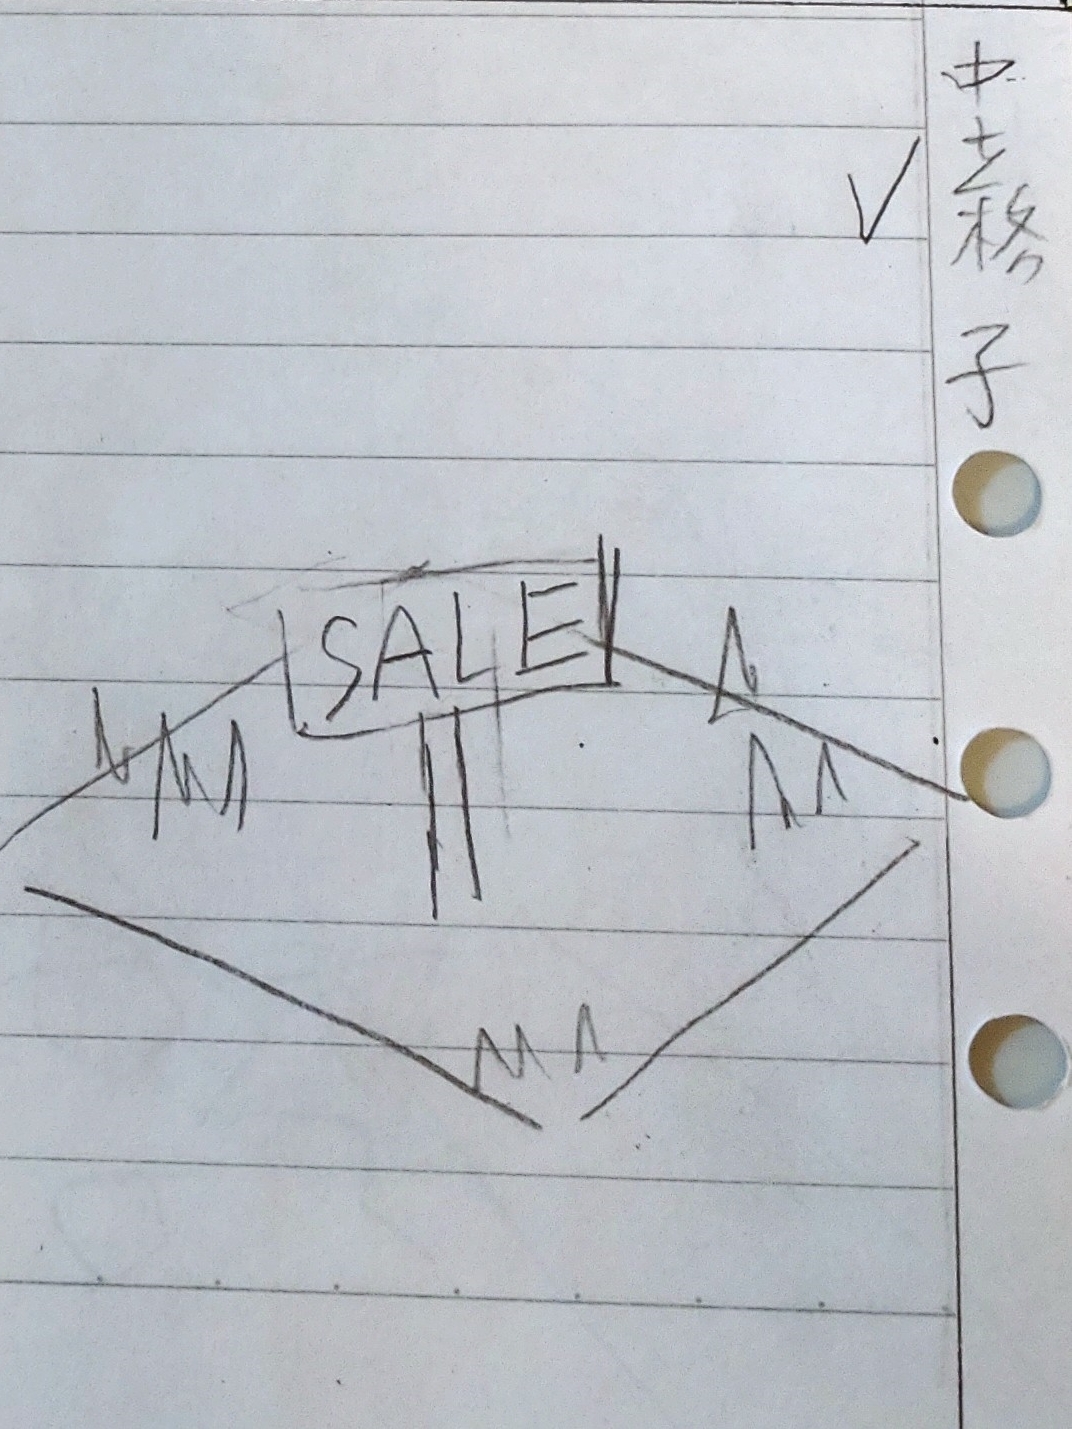 中去格子
SALE